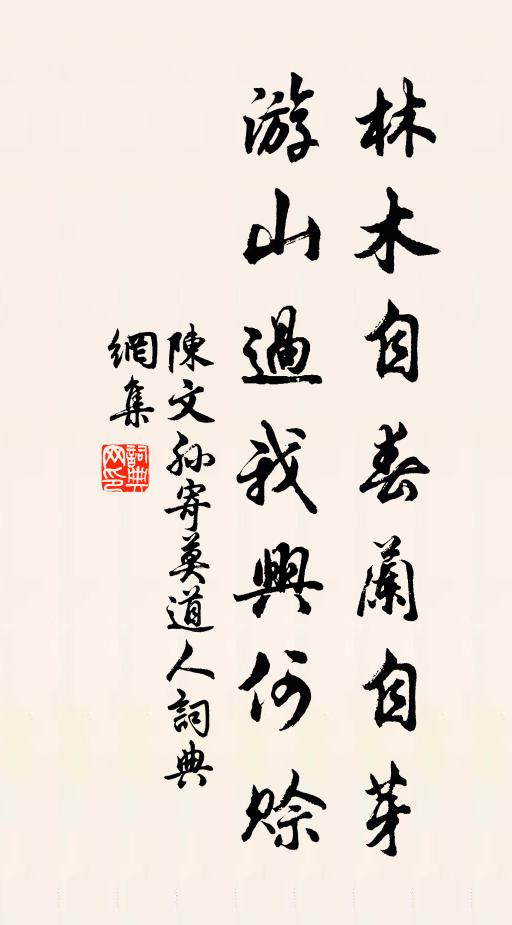 林木自春蘭自芽
游山過我興何賒
陳文孫寄莫道人詞典
網集
詞典
网印